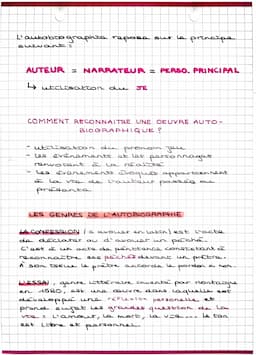 L'autobiographie repose sur le principe
suivant :
AUTEUR = NARRATEUR = PERSO. PRINCIPAL
↳ utilisation du JE
COMMENT RECONNAITRE UNE OEUVRE AUTO-
BIOGRAPHIQUE ?
- utilisation du pronom je
- les événements et les personnages
renvoient à la réalité
- les événements évoqués appartiennent
à la vie de l'auteur passée ou
présente
LES GENRES DE L'AUTOBIOGRAPHIE
LA CONFESSION (= avouer en latin) est l'acte
de déclarer ou d'avouer un péché.
C'est à un acte de pénitence consistant à
reconnaître ses péchés devant un prêtre.
À son le prêtre accorde le pardon
L'ESSAI, genre littéraire inventé par Montaigne
en 1580, est une oeuvre dans laquelle est
développé une réflexion personnelle et
prend sujet les grandes question de la
vie : l'amour, la mort, la vie... le ton
est libre et personnel.